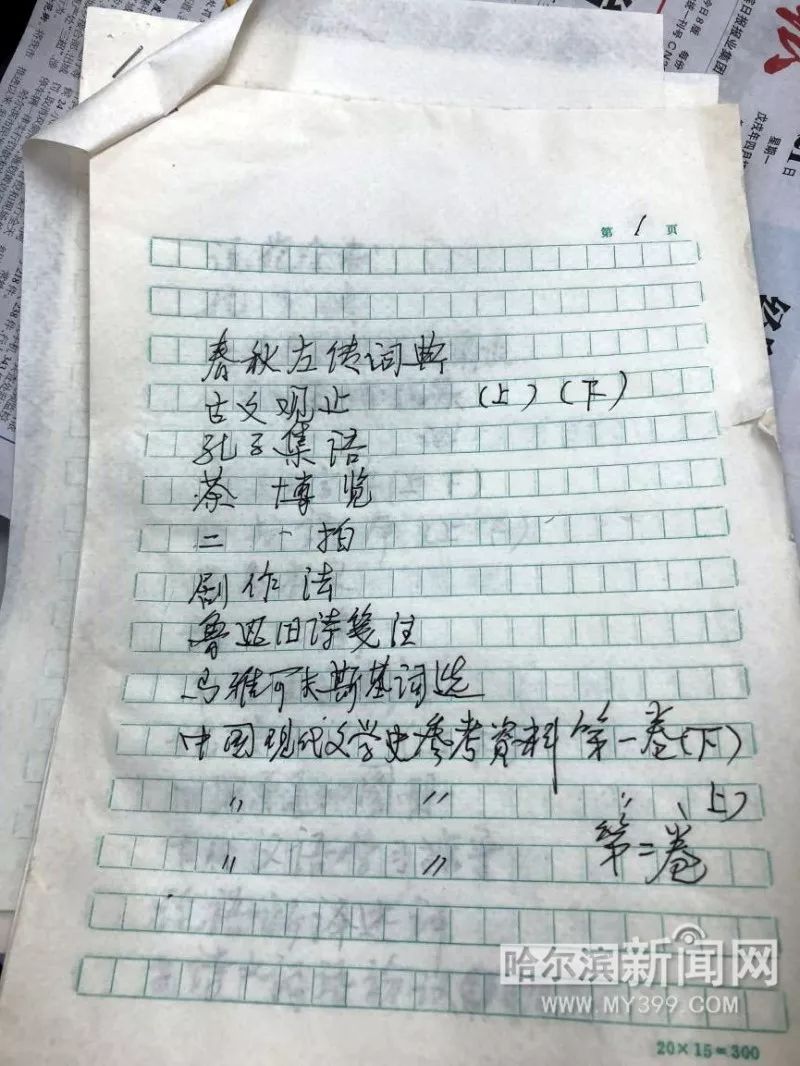 第1页
春秋左传词典
古文观止 (上)(下)
孔子集语
茶博览
二拍
剧作法
鲁迅旧诗笺注
马雅可夫斯基词选
中国现代文学史参考资料第一卷(下)
〃 〃 〃 (上)
〃 〃 第二卷
哈尔滨新闻网
WWW.MY399.COM
20×15=300
星期一
戊戌年四月